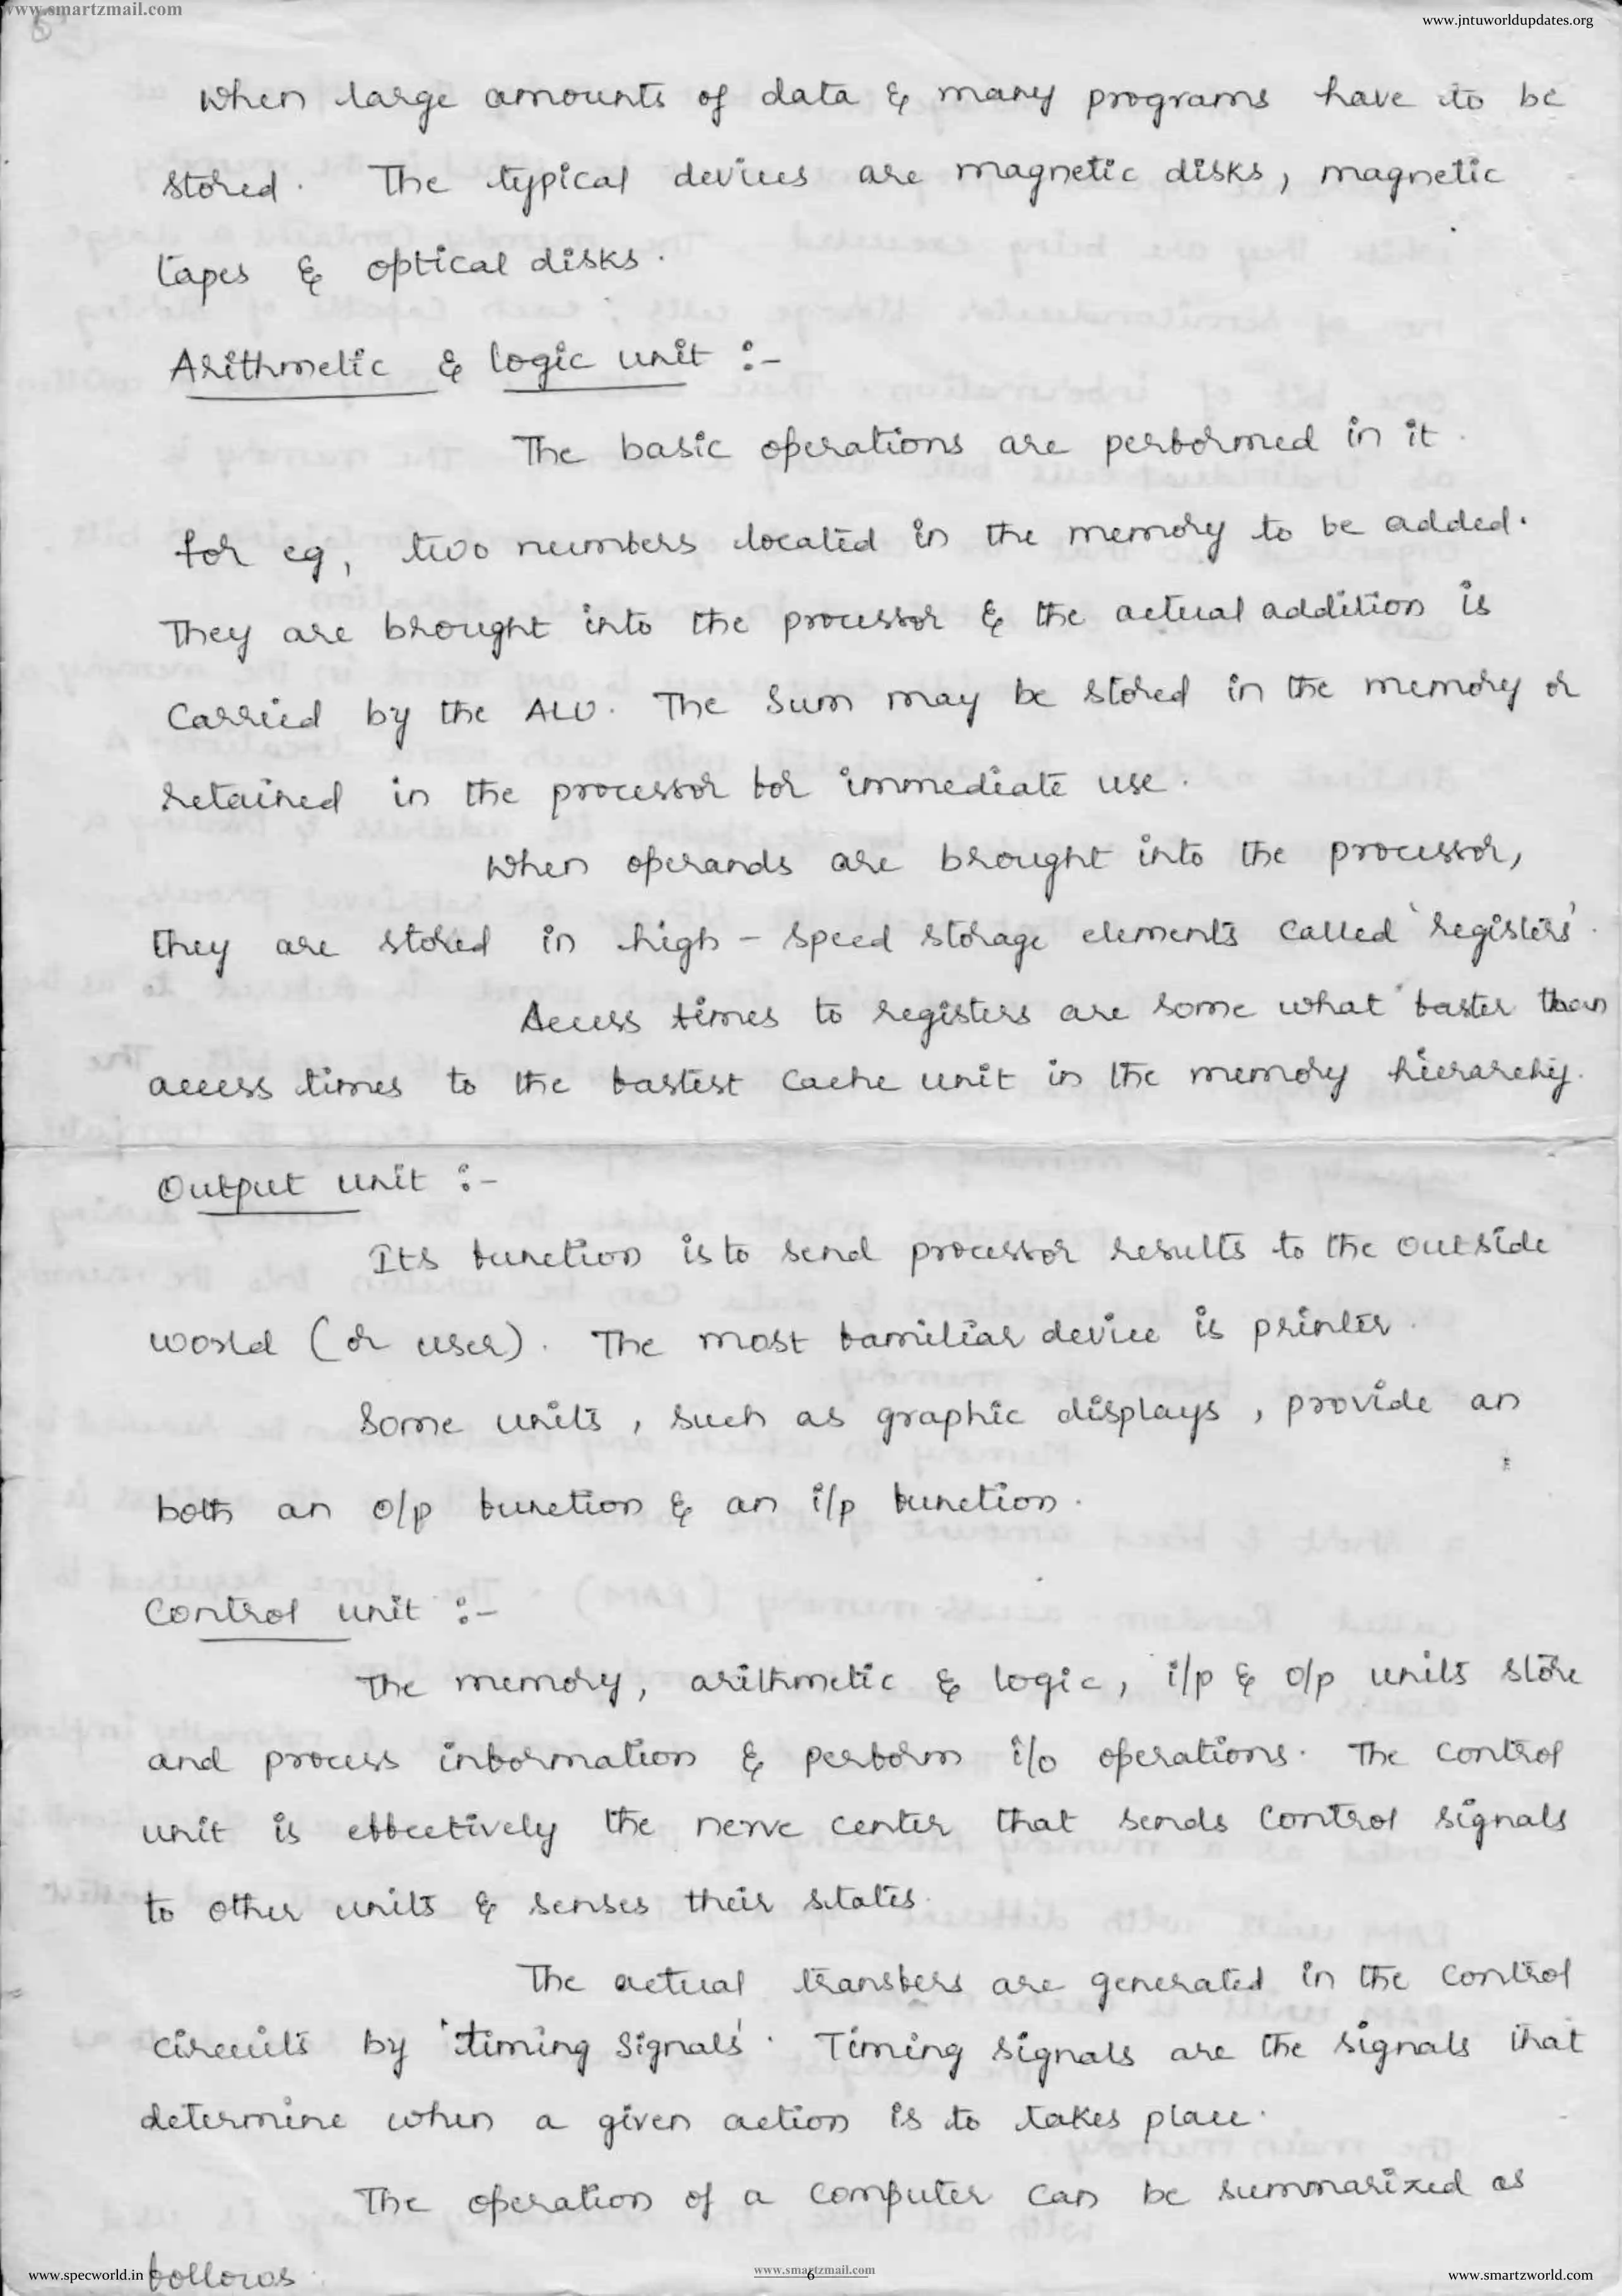 www.smartzmail.com
www.jntuworldupdates.org
When large amounts of data & many programs have to be
stored. The typical devices are magnetic disks, magnetic
tapes & optical disks.
Arithmetic & logic unit :-
The basic operations are performed in it.
for eg, two numbers located in the memory to be added.
They are brought into the processor & the actual addition is
carried by the ALU. The sum may be stored in the memory or
retained in the processor for immediate use.
When operands are brought into the processor,
they are stored in high - speed storage elements called 'registers'.
Access times to registers are some what faster than
access times to the fastest cache unit in the memory hierarchy.
Output unit :-
Its function is to send processor results to the outside
world (or user). The most familiar device is printer.
Some units, such as graphic displays, provide an
both an o/p function & an i/p function.
Control unit :-
The memory, arithmetic & logic, i/p & o/p units store
and process information & perform i/o operations. The control
unit is effectively the nerve center that sends control signals
to other units & senses their states.
The actual transfers are generated in the control
circuits by 'timing signals'. Timing signals are the signals that
determine when a given action is to takes place.
The operation of a computer can be summarized as
follows.
www.specworld.in
www.smartzmail.com
6
www.smartzworld.com